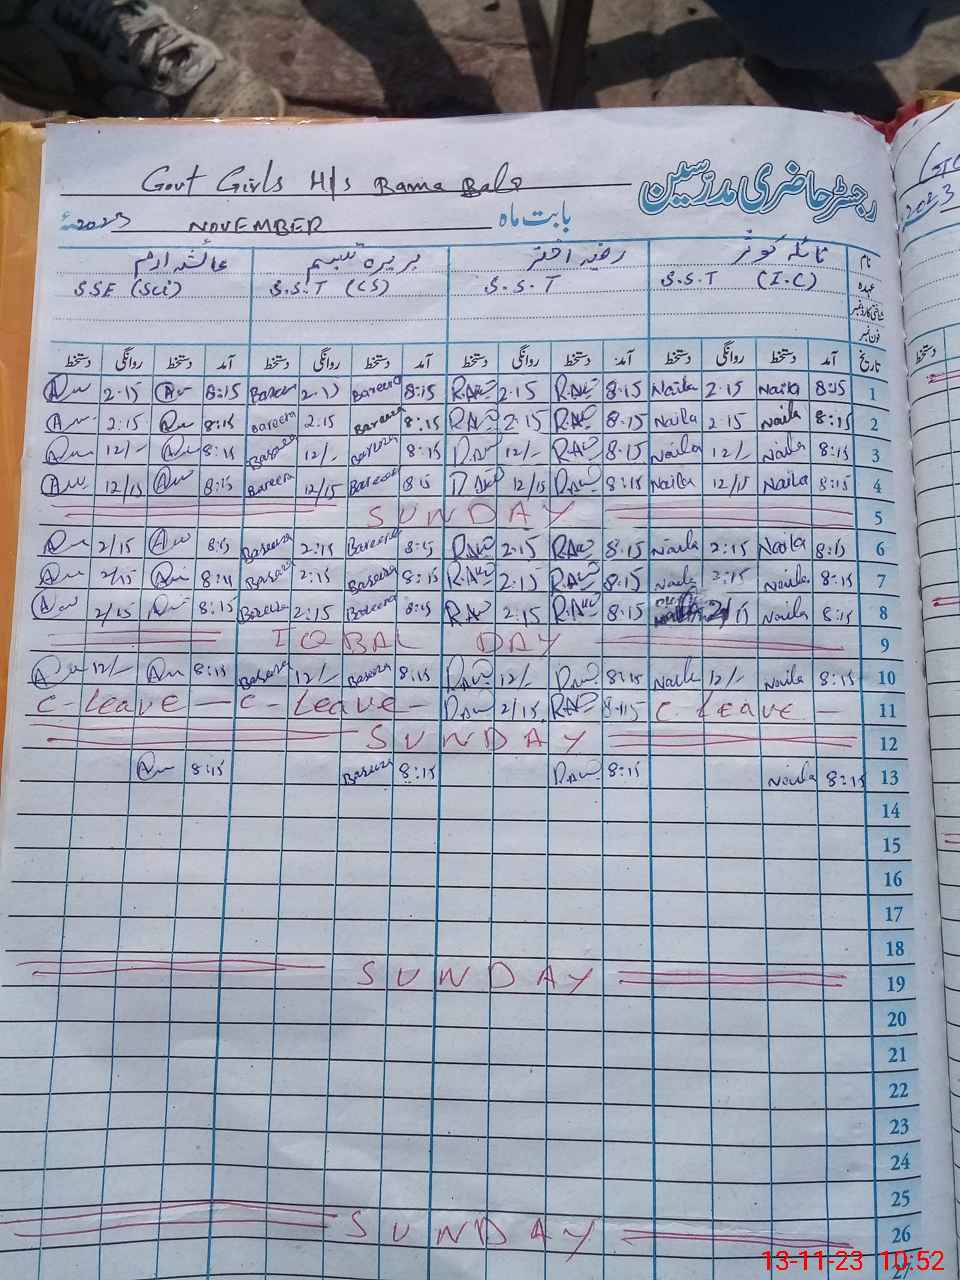 Govt Girls H/s Bama Bala رجسٹر حاضری مدرسین
2023ء NOVEMBER بابت ماہ
نام نائلہ کوثر رضیہ اختر بریرہ تبسم عائشہ ارم
عہدہ S.S.T (I.C) S.S.T S.S.T (CS) SSE (Sci)
شناختی کارڈ نمبر
فون نمبر
تاریخ آمد دستخط روانگی دستخط آمد دستخط روانگی دستخط آمد دستخط روانگی دستخط آمد دستخط روانگی دستخط
2.15 8:15 Bareera Bareera 8:15 RAK 2.15 RAK 8.15 Naila 2.15 Naila 8:15 1
2:15 8:15 Bareera 2.15 Bareera 8:15 RAK 2.15 RAK 8.15 Naila 2.15 Naila 8:15 2
12/- 8:15 Bareera 12/- Bareera 8:15 12/- RAK 8.15 Naila 12/- Naila 8:15 3
12/15 8:15 Bareera 12/15 Bareera 8:15 12/15 8:15 Naila 12/15 Naila 8:15 4
SUNDAY 5
2/15 8:15 Bareera 2:15 Bareera 8:15 RAK 2.15 RAK 8.15 Naila 2:15 Naila 8:15 6
2/15 Bareera 2:15 Bareera 8:15 RAK 2.15 RAK 8.15 Naila 2:15 Naila 8:15 7
2/15 8:15 Bareera 2:15 Bareera 8:15 RAK 2:15 RAK 8.15 Naila 8:15 8
IQBAL DAY 9
12/- 8:15 Bareera 12/- Bareera 8:15 12/- 8:15 Naila 12/- Naila 8:15 10
C-Leave — C-Leave — 2/15 RAK 8.15 C Leave — 11
SUNDAY 12
8:15 Bareera 8:15 8:15 Naila 8:15 13
14
15
16
17
18
SUNDAY 19
20
21
22
23
24
25
SUNDAY 26
27
13-11-23 10:52